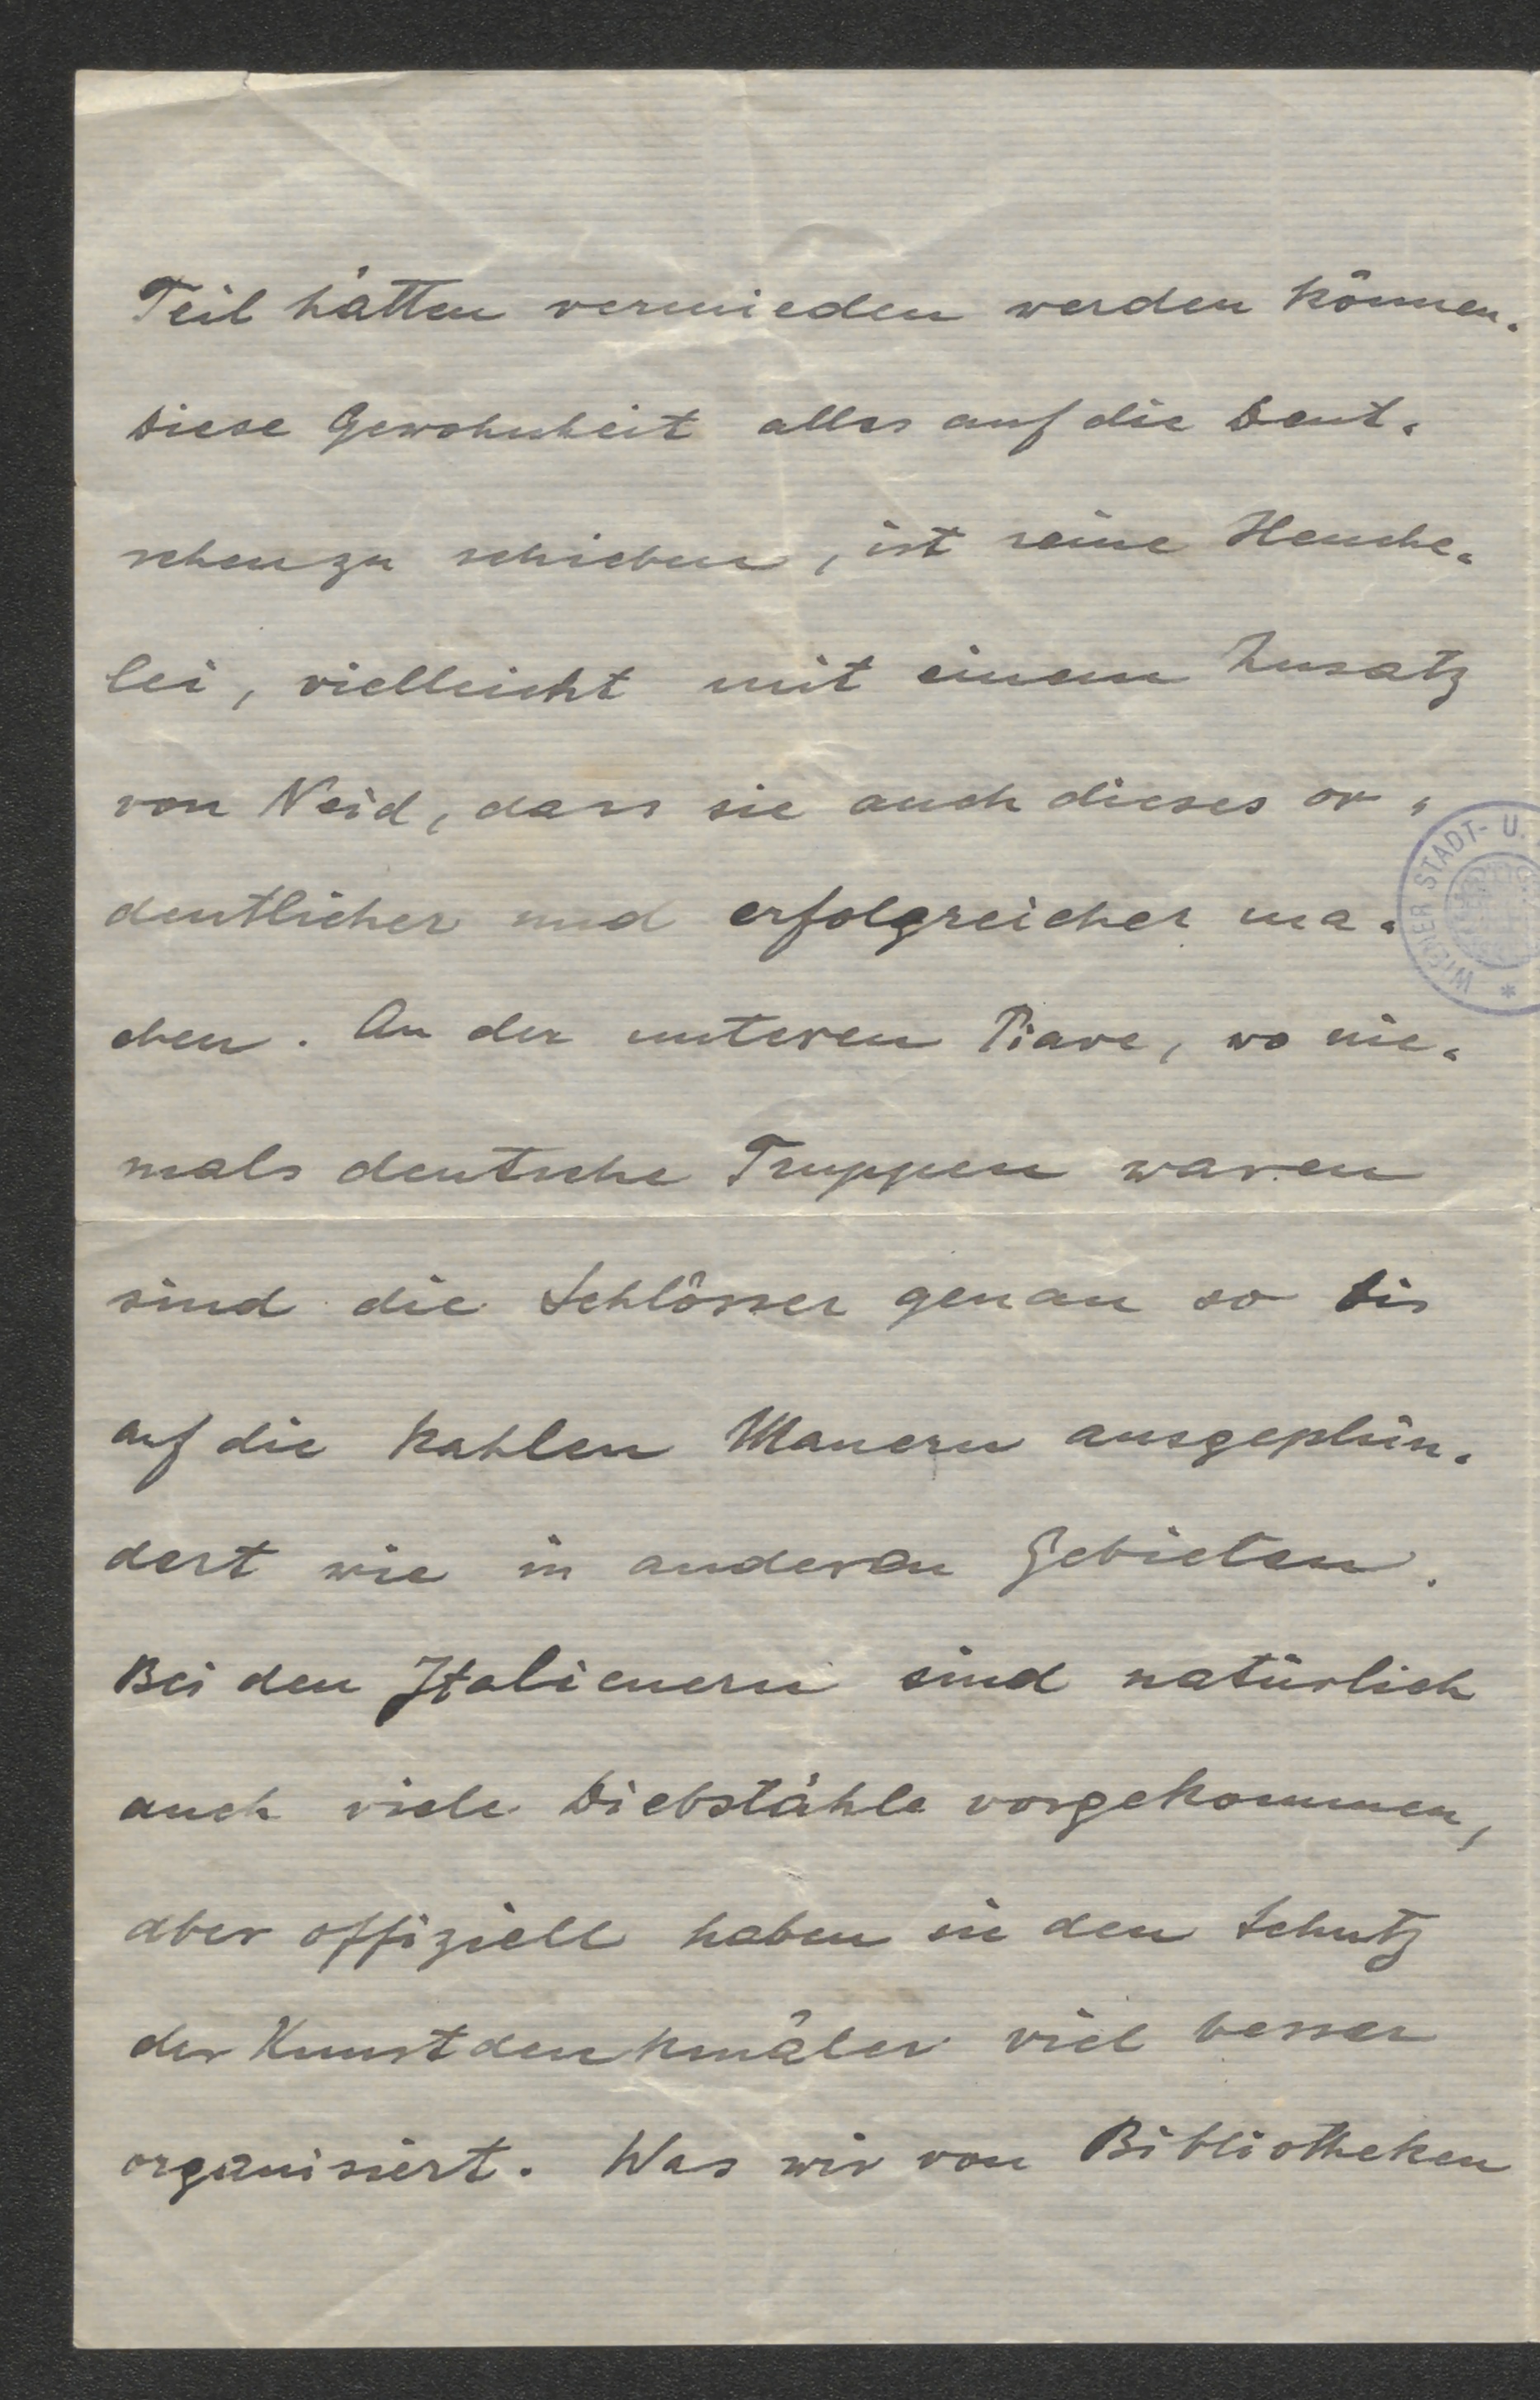 Teil hätten vermieden werden können.
Diese Gewohnheit alles auf die Deut-
schen zu schieben, ist reine Heuche-
lei, vielleicht mit einem Zusatz
von Neid, dass sie auch dieses or-
dentlicher und erfolgreicher ma-
chen. An der unteren Piave, wo nie-
mals deutsche Truppen waren
sind die Schlösser genau so bis
auf die kahlen Mauern ausgeplün-
dert wie in anderen Gebieten.
Bei den Italienern sind natürlich
auch viele Diebstähle vorgekommen,
aber offiziell haben sie den Schutz
der Kunstdenkmäler viel besser
organisiert. Was wir von Bibliotheken
WIENER STADT- U.